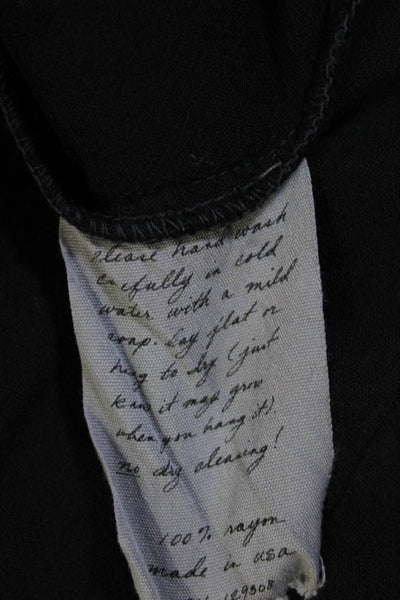 please hand wash
carefully in cold
water with a mild
soap. Lay flat or
hang to dry (just
know it may grow
when you hang it).
no dry cleaning!
100% rayon
made in usa
129308